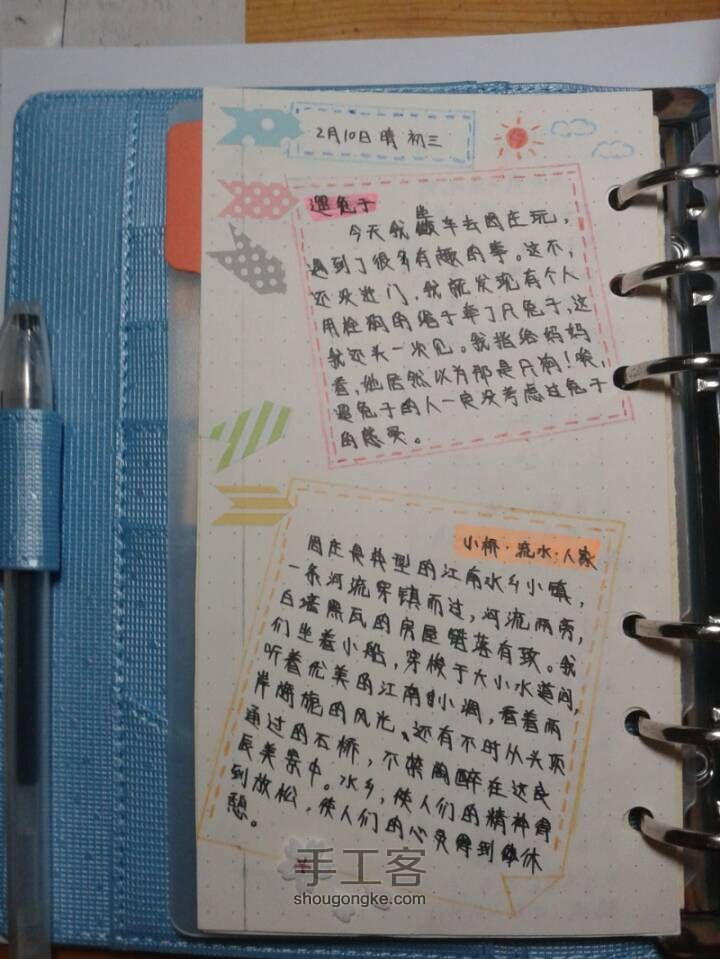 2月10日 晴 初三
遛兔子
今天我坐车去周庄玩,
遇到了很多有趣的事。这不,
还没进门,我就发现有个人
用拴狗的绳子牵了只兔子,这
我还头一次见。我指给妈妈
看,他居然以为那是只狗!唉,
遛兔子的人一定没考虑过兔子
的感受。
小桥·流水·人家
周庄是典型的江南水乡小镇,
一条河流穿镇而过,河流两旁,
白墙黑瓦的房屋错落有致。我
们坐着小船,穿梭于大小水道间,
听着优美的江南小调,看着两
岸旖旎的风光、还有不时从头顶
通过的石桥,不禁陶醉在这良
辰美景中。水乡,使人们的精神得
到放松,使人们的心灵得到休
憩。
手工客
shougongke.com